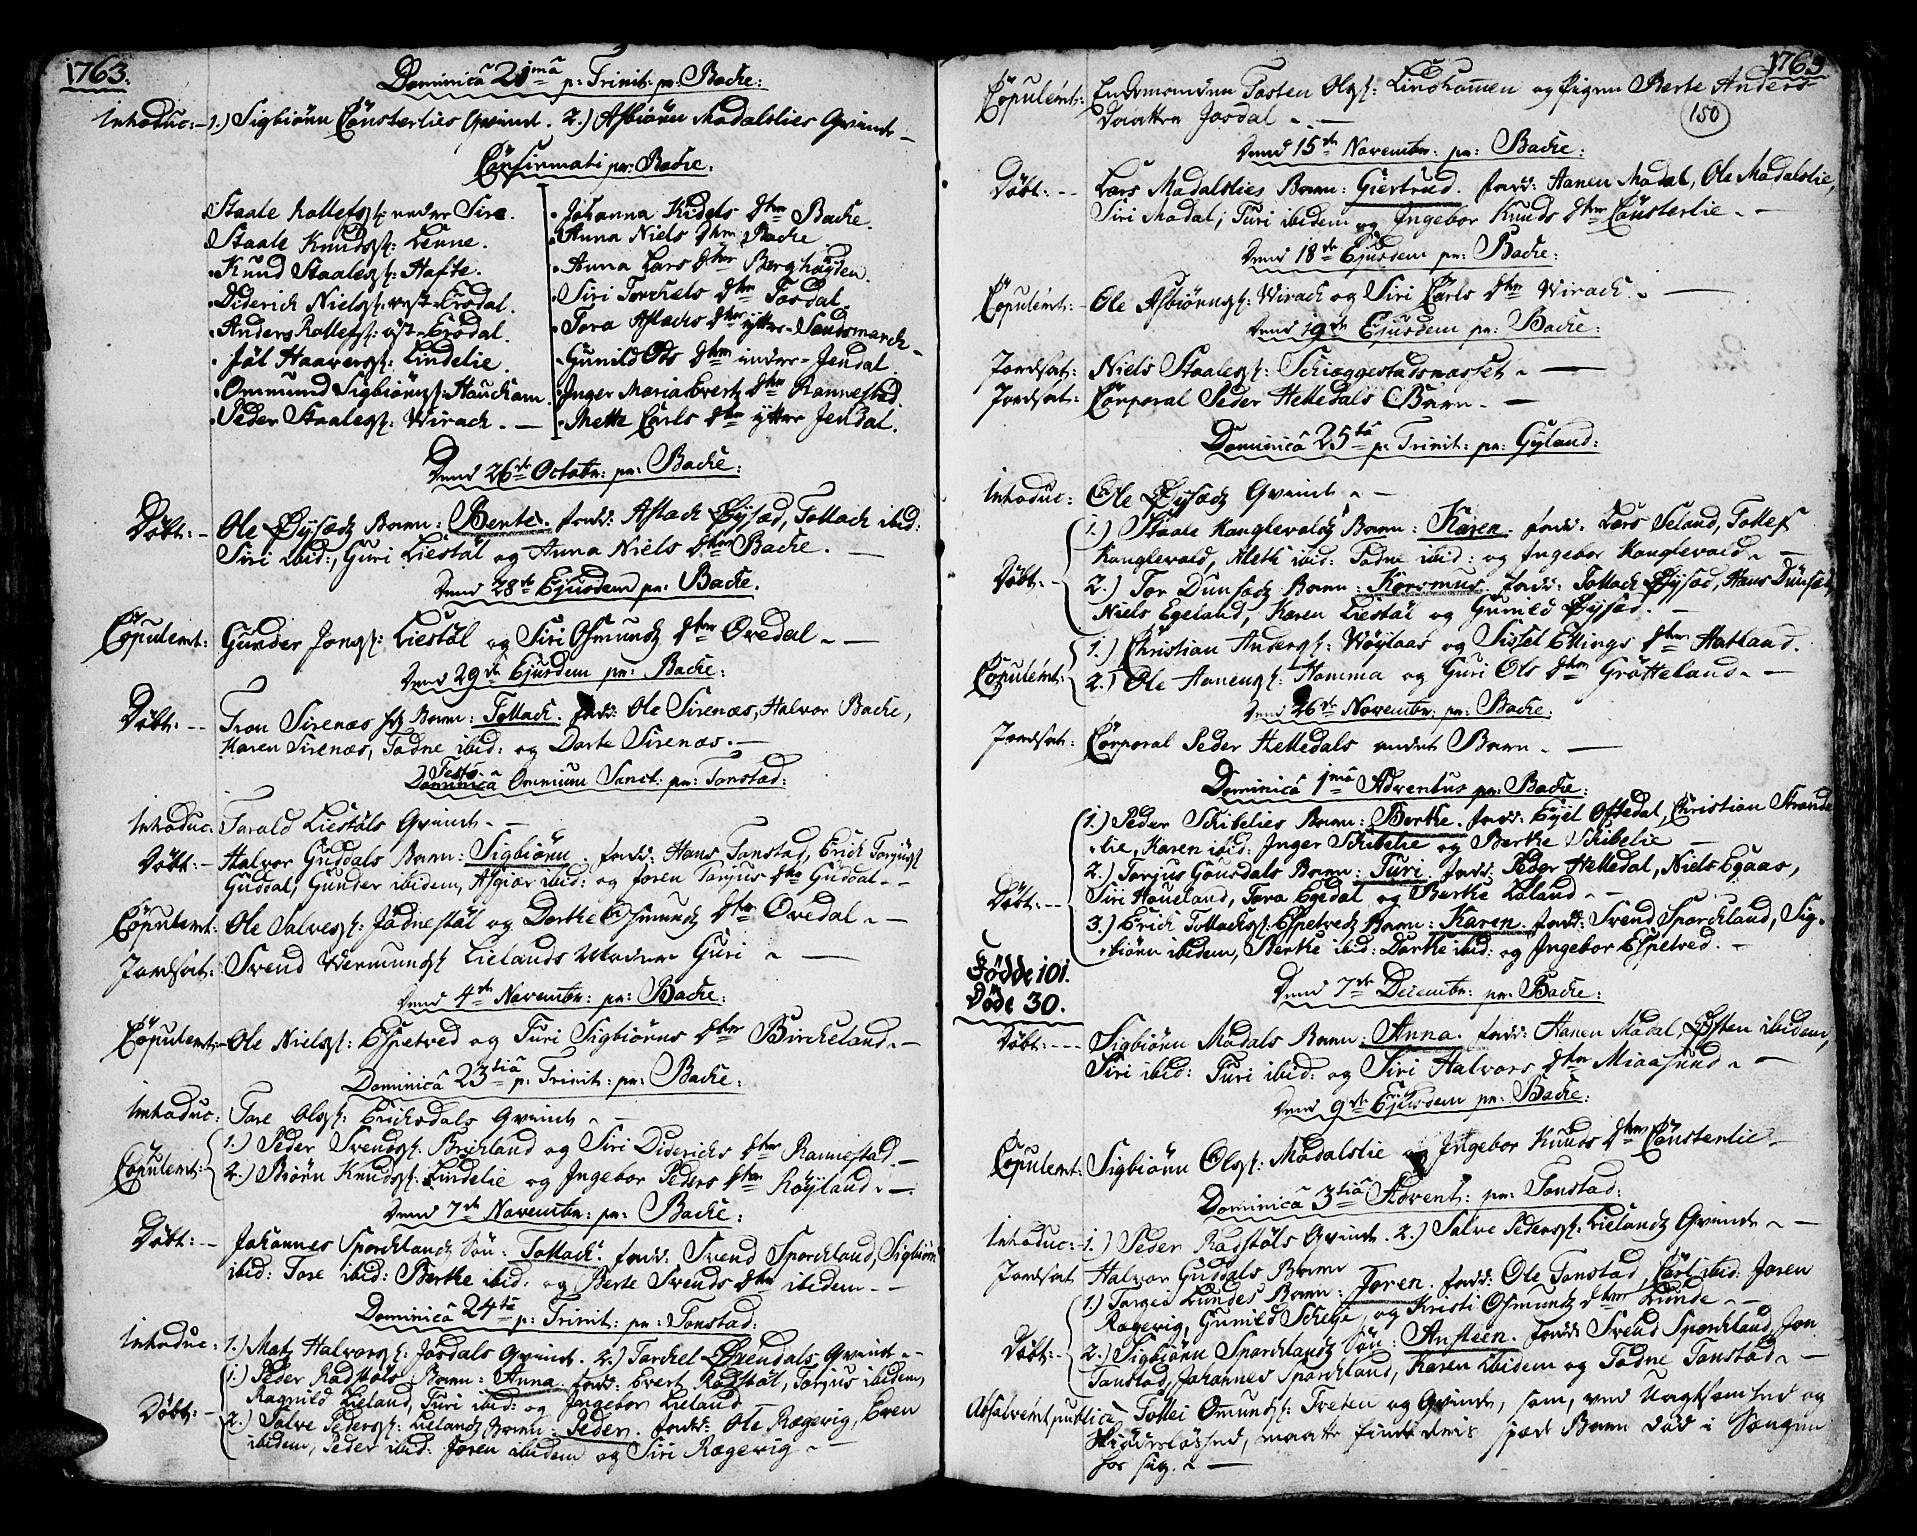 1763.
Dominica 21ma p: Trinit: pr: Backe:
Introduc:- 1.) Sigbiørn Cønsterlies Qvinde. 2.) Asbiørn Mødalslies Qvinde -
Confirmati pr: Backe:
Staale Rollefss: nedre Sire.
Staale Knudss: Lenne.
Knud Staaless: Hafte.
Diderich Nielss: vest-Ersdal.
Anders Rollefss: øst-Ersdal.
Jøl Haaverss: Lindelie.
Ommund Sigbiørns: Hauckom.
Peder Staaless: Wirach. -
Johanna Kidels dtter Backe.
Anna Niels dtter Backe
Anna Lars dtter Berghøyden.
Siri Torckels dtter Josdal.
Tora Aslachs dtter yttre-Sandsmarck -
Gunild Ods dtter indre-Jendal
Inger Maria Evertz dtter Rannestad.
Mette Carls dtter yttre Jendal.
Dend 26de Octobr: pr: Backe:
Døbt:- Ole Øysædz Barn: Bente. fadd: Aslach Øysæd, Tollach ibid:
Siri ibid:, Guri Liestøl og Anna Niels dtter Backe. -
Dend 28de Ejusdem pr: Backe.
Copuleret: Gunder Jonss: Liestøl og Siri Osmundz dtter Ovedal -
Dend 29de Ejusdem pr: Backe:
Døbt: -- Tron Sirenæs hs Barn: Tollach. fadd: Ole Sirenæs, Halvor Backe,
Karen Sirenæs, Tadne ibid: og Dorte Sirenæs. -
Festo
Dominica Omnium Sanct: pr: Tonstad:
Introduc: Tarald Liestøls Qvinde -
Døbt:- Halvor Guddals Barn: Sigbiørn. fadd: Hans Tonstad, Erich Torjuss:
Guddal, Gunder ibidem, Asgier ibid: og Joren Torjus dtter Guddal -
Copuleret: Ole Salvess: Jødnestøl og Dorthe Osmundz dtter Ovedal -
Jordsat: Svend Vermundss Lielands Moder Guri -
Dend 4de Novembr: pr: Backe:
Copuleret:- Ole Nielss: Espetved og Turi Sigbiørns dtter Birckeland -
Dominica 23tia p: Trinit: pr: Backe:
Introduc: Tore Olss: Ericksdals Qvinde -
Copuleret: 1.) Peder Svendss: Birckland og Siri Diderichs dtter Rannestad -
2.) Biørn Knudss: Lindelie og Ingebor Peders dtter Røyland -
Dend 7de Novembr: pr: Backe:
Døbt: - Johannes Sporcklandz Søn: Tollach. fadd: Svend Sporckland, Sigbiørn
ibid: Tore ibid: Berthe ibid: og Berte Svends dtter ibidem -
Dominica 24ta p: Trinit: pr: Tonstad:
Introduc: 1.) Matz Halvorss: Josdals Qvinde. 2.) Torckel Øvendals Qvinde -
Døbt: - 1.) Peder Radstøls Barn: Anna. fadd: Evert Radstøl, Torjus ibidem,
Ragnild Lieland, Turi ibid: og Ingebor Lieland
2.) Salve Pederss: Lielandz Barn: Peder. fadd: Ole Rægevig, Even
ibidem, Peder ibid: Joren ibidem og Siri Rægevig -
1763
150
Copuleret: Enckemanden Tosten Olss: Lindhommen og Pigen Berte Anders
Daatter Josdal -
Dend 15de Novembr: pr: Backe:
Døbt: -- Lars Mødalslies Barn: Giertrud. fadd: Aanen Mødal, Ole Mødalslie,
Siri Mødal, Turi ibidem og Ingebor Knuds dtter Cønsterlie -
Dend 18de Ejusdem pr: Backe:
Copuleret:- Ole Asbiørnss: Wirach og Siri Carls dtter Wirach. -
Dend 19de Ejusdem pr: Backe:
Jordsat: Niels Staaless: Schiøggestadsnasset -
Jordsat: Corporal Peder Helledals Barn -
Dominica 25ta p: Trinit: pr: Gyland:
Introduc: Ole Øysædz Qvinde -
Døbt: 1.) Staale Kanglevaldz Barn: Karen. fadd: Lars Seland, Tollef
Kanglevald, Aleth ibid: Tadne ibid: og Ingebor Kanglevald -
2.) Tor Dunsædz Barn: Rorsmus. fadd: Tollach Øysæd, Hans Dunsæd,
Niels Egeland, Karen Liestøl og Gunild Øysæd. -
Copuleret: 1.) Christian Anderss: Wøylaas og Sissel Ellings dtter Hatland.
2.) Ole Aanenss: Homma og Guri Ols dtter Grøtteland -
Dend 26de Novembr: pr: Backe:
Jordsat: Corporal Peder Helledals andet Barn -
Dominica 1ma Adventus pr: Backe:
Døbt: -- 1.) Peder Schibelies Barn: Berthe. fadd: Eyel Oftedal, Christian Strande
lie, Karen ibid: Inger Schibelie og Berthe Schibelie -
2.) Torjus Gousdals Barn: Turi. fadd: Peder Helledal, Niels Egaas,
Siri Houeland, Tora Egedal og Berthe Løland -
3.) Erich Tollachss: Espetvedz Barn: Karen. fadd: Svend Sporckland, Sig-
biørn ibidem, Berthe ibid: Dorthe ibid: og Ingebor Espetved. -
Fødde 101.
Døde 30.
Dend 7de Decembr: pr: Backe:
Døbt: --- Sigbiørn Mødals Barn: Anna. fadd: Aanen Mødal, Østen ibidem,
Siri ibid: Turi ibid: og Siri Halvors dtter Miaasund -
Dend 9de Ejusdem pr: Backe:
Copuleret: Sigbiørn Olss: Mødalslie og Ingebor Knuds dtter Cønsterlie -
Dominica 3tia Advent: pr: Tonstad:
Introduc:- 1.) Peder Radstøls Qvinde. 2.) Salve Pederss: Lielandz Qvinde -
Jordsat Halvor Guddals Barn
Døbt: - 1.) Torgei Lundes Barn: Joren. fadd: Ole Tonstad, Carl ibid: Joren
Rægevig, Gunild Scheye, og Kristi Osmundz dtter Lunde -
2.) Sigbiørn Sporcklandz Søn: Ansteen. fadd: Svend Sporckland, Jon
Tonstad, Johannes Sporckland, Karen ibidem og Tadne Tonstad -
Absolveret publicè Tollei Omundss: Treten og Qvinde, som, ved Uagtsomhed og
Skiødesløshed, maatte finde deris spæde Barn død i Sengen
hos sig. -